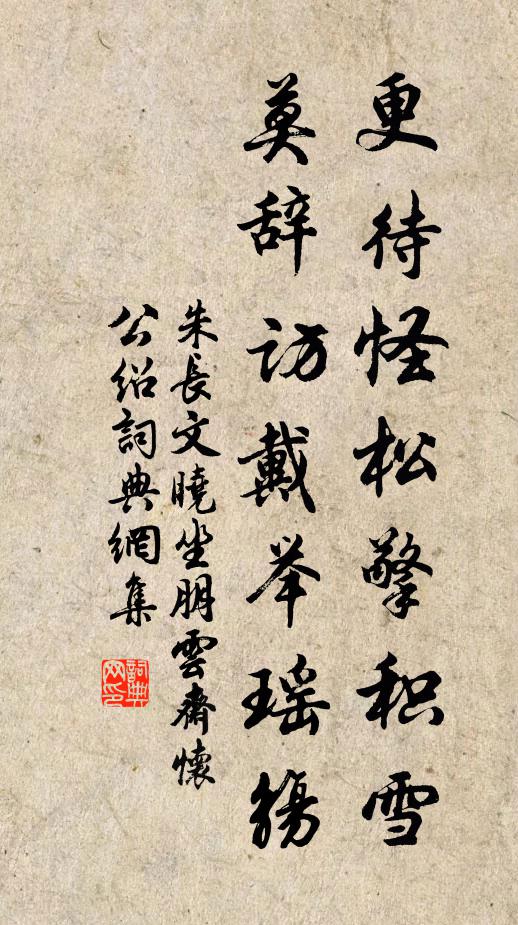 更待怪松擎积雪
莫辞访戴举瑶觞
朱長文曉坐朋雲齋懷
公绍詞典網集
詞典网印